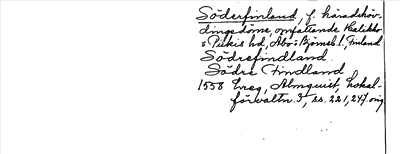 Söderfinland, f. häradshöv-
dingedöme omfattande Halikko
o Pikis hd, Åbo o Björneb. l., Finland
Södrefindland
Södre Findland
1558 Ereg, Almquist, Lokal-
förvaltn. 3, ss. 221, 247. orig